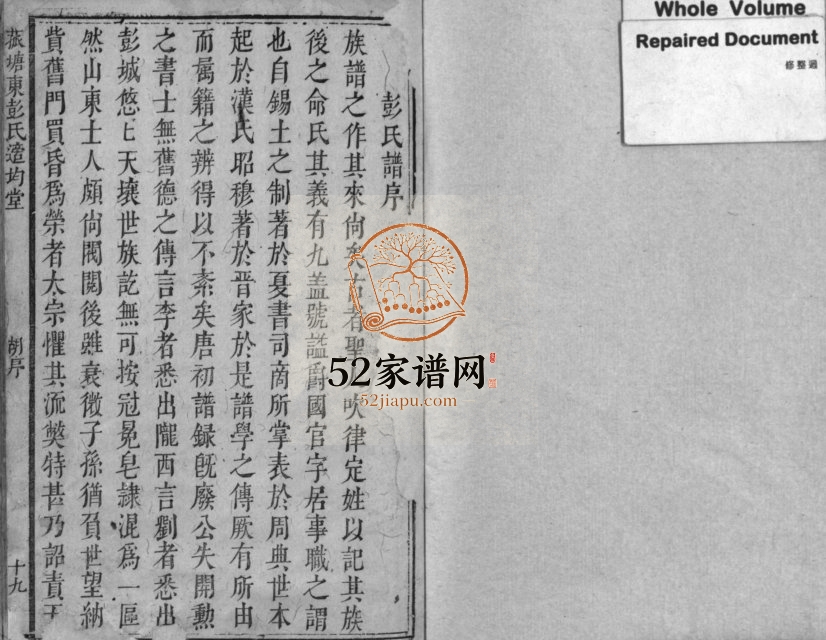 Whole Volume
Repaired Document
修整過
彭氏譜序
族譜之作其來尙矣古者聖吹律定姓以記其族
後之命氏其義有九盖號謚爵國官字居事職之謂
也自錫土之制著於夏書司商所掌表於周典世本
起於漢氏昭穆著於晋家於是譜學之傳厥有所由
而屬籍之辨得以不紊矣唐初譜録旣廢公失開勲
之書士無舊德之傳言李者悉出隴西言劉者悉出
彭城悠匕天壤世族訖無可按冠冕皂隷混爲一區
然山東士人頗尙閥閱後雖衰微子孫猶負世望納
貲舊門買昏爲榮者太宗懼其流獘特甚乃詔責王
塘東彭氏遺均堂
胡序
十九
52家谱网
52jiapu.com